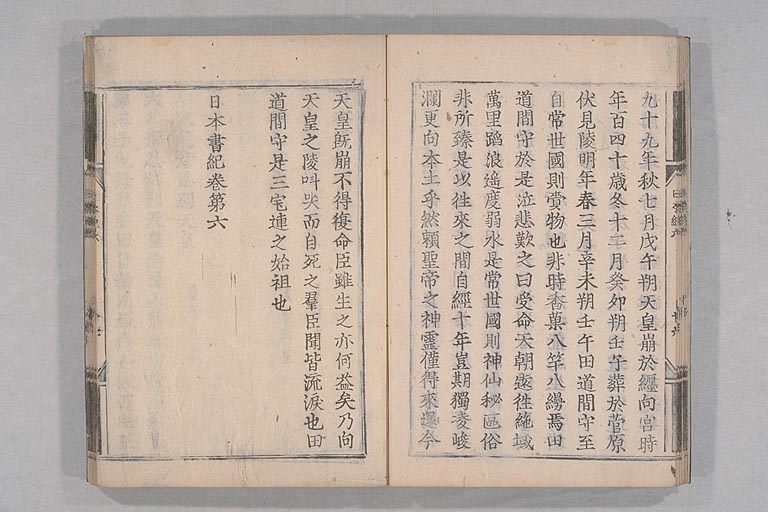 九十九年秋七月戊午朔天皇崩於纏向宮時
年百四十歳冬十二月癸卯朔壬子葬於菅原
伏見陵明年春三月辛未朔壬午田道間守至
自常世國則賷物也非時香菓八竿八縵焉田
道間守於是泣悲歎之曰受命天朝遠徃絶域
萬里蹈浪遙度弱水是常世國則神仙秘區俗
非所臻是以徃來之間自經十年豈期獨凌峻
瀾更向本土乎然頼聖帝之神靈僅得來還今
天皇既崩不得復命臣雖生之亦何益矣乃向
天皇之陵叫哭而自死之羣臣聞皆流淚也田
道間守是三宅連之始祖也
日本書紀巻第六